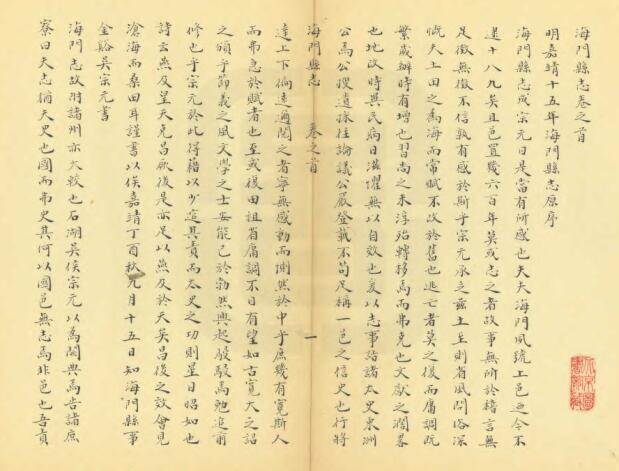 海門縣志卷之首
明嘉靖十五年海門縣志原序
海門縣志成宗元曰是當有所感也夫夫海門夙號上邑迄今不
逮十八九矣且邑置幾六百年莫或志之者故事無所於稽言無
足徵無徵不信孰有感於斯乎宗元承乏茲土至則省風問俗深
慨夫土田之為海而常賦不改於舊也逃亡者莫之復而庸調既
繁歲辦時有增也習尚之末淳殆轉移焉而弗克也文獻之濶畧
也地改時異民病日滋懼無以自效也爰以志事諮諸太史東洲
公焉公搜遺採往論議公嚴登載不苟足稱一邑之信史也行將
海門縣志 卷之首 一
達上下倘遠邇閱之者寧無感動而惻然於中乎庶幾有寬斯人
而弗急於賦者也至或復田租省庸調不曰有望如古寬大之詔
之頒乎節義之風文學之士安能已於勃然興起駸駸焉勉追前
修也乎宗元於此得藉以少逭其責而太史之功則星日昭如也
詩云燕及皇天克昌厥後是亦足以燕及於天矣昌後之效會見
滄海而桑田耳謹書以俟嘉靖丁酉秋九月十五日知海門縣事
金谿吳宗元書
海門志故附諸州亦大較也石湖吳侯宗元以為闕典焉告諸庶
寮曰天志猶天史也國而弗史其何以國邑無志焉非邑也吾責